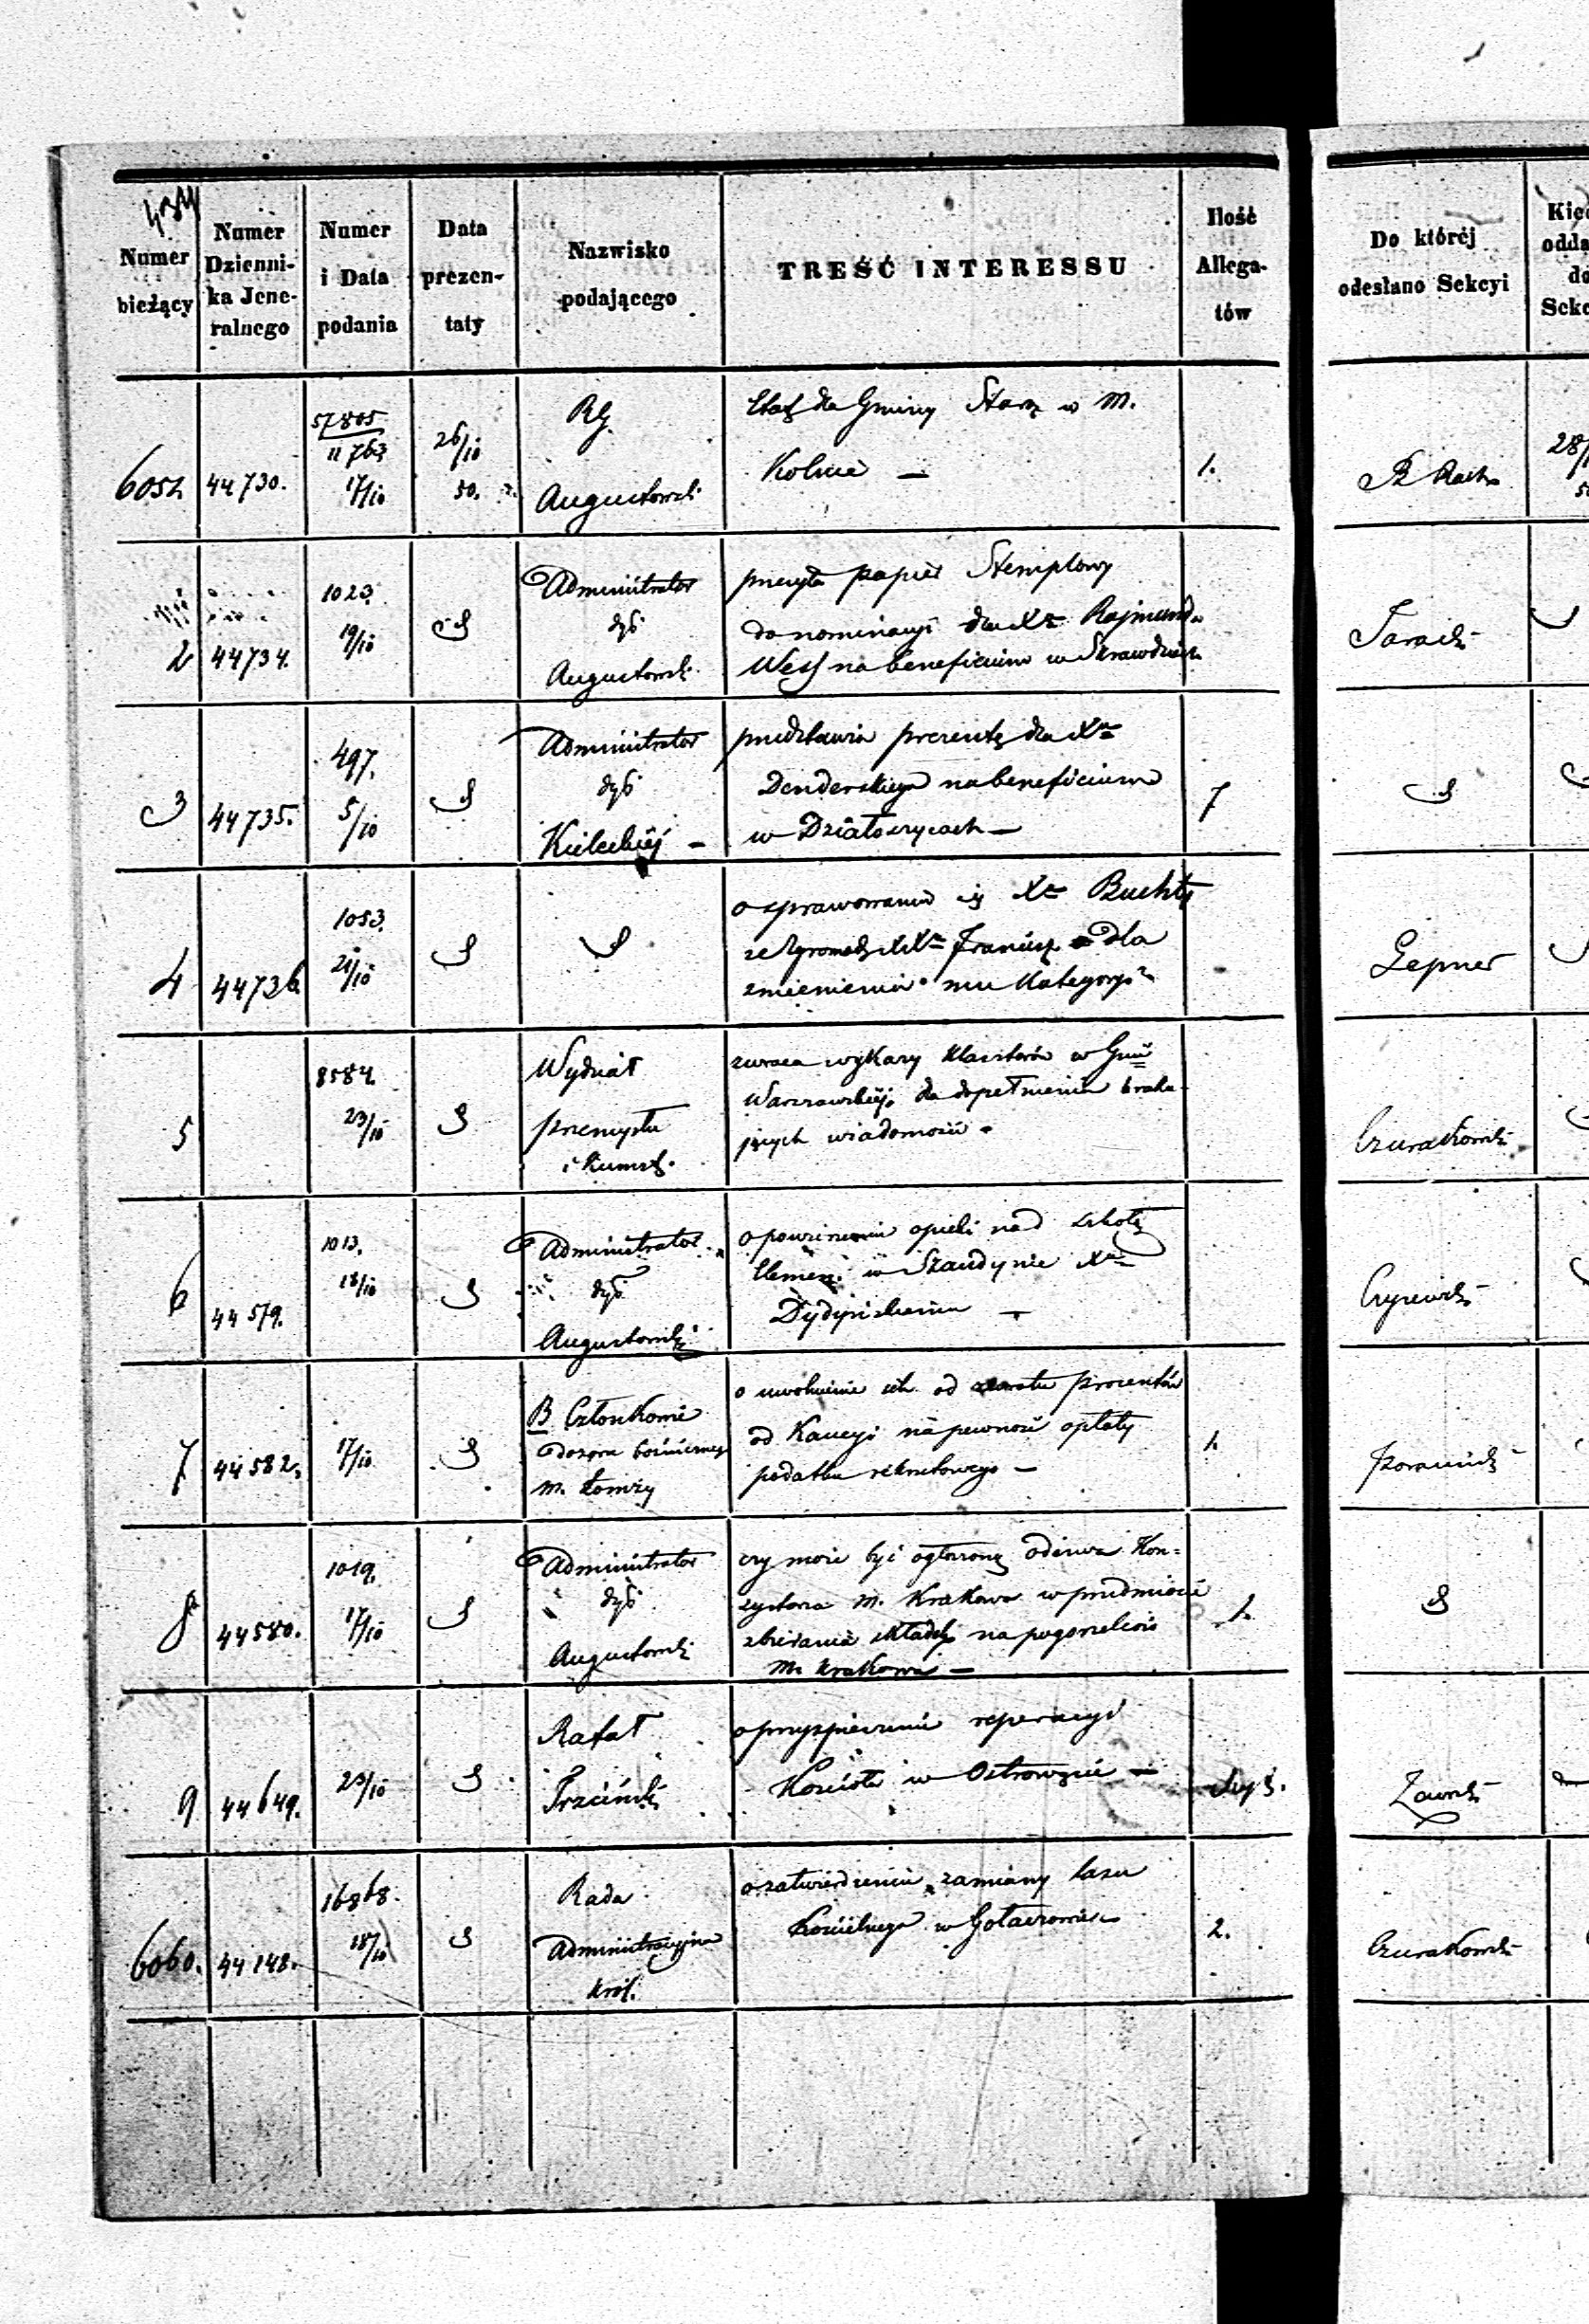 Numer
bieżący
Numer
Dzienni-
ka Jene-
ralnego
Numer
i Data
podania
Data
prezen-
taty
Nazwisko
podającego
TREŚĆ INTERESSU
Ilość
Allega-
tów
Do któréj
odesłano Sekcyi
57805
11763
17/10
26/10
50.
6051
44730.
RG.
Augustowski
Etat dla Gminy Starz w M.
Kolnie —
1.
28/
2
44734.
1023.
19/10
Administrator
dyć
Augustowski
przesyła papier Stemplowy
do nominacyi dla Xa Rajmunda
Wess na beneficium w
3
44735.
497.
5/10
Administrator
dyć
Kieleckiéj —
przedstawia prezentę dla Xa
Denderskiego na beneficium
w Działoszycach —
7
4
44736
1053.
21/10
o sprawowaniu się Xa Buchty
ze Zgromadz XXa Francisz dla
zmienienia mu Kategoryi
Lepner
5
8584.
23/10
Wydział
przemysłu
i Kunszt.
zwraca wykazy Klasztorów w Gub
Warszawskiéj, dla dopełnienia braku-
jących wiadomości.
Czurakowski
6
44579.
1013.
18/10
Administrator
dyć
Augustowski
o powierzeniu opieki nad szkołą
Elemen. w Szaudynie Xa
—
Czyzewski
7
44582.
17/10
B Członkowie
dozoru bóżniczego
m. Łomży
o uwolnienie ich od zwrotu procentów
od Kaucyi na pewność opłaty
podatku rekrutowego —
1.
8
44580.
1019.
17/10
Administrator
dyć
Augustowski
czy może być ogłoszoną odezwa Kon=
zystorza M. Krakowa w przedmiocie
zbierania składki na pogorzelców
M. Krakowa —
1.
9
44649.
23/10
Rafał
Trzciński
o przyspieszenie reperacyi
Kościoła w Ostrowęzie —
Zawadz
6060.
44148.
16868.
18/10
Rada
Administracyjna
Król.
o zatwierdzenie zamiany lasu
Kościelnego w Gołaczowie
2.
Czurakowski